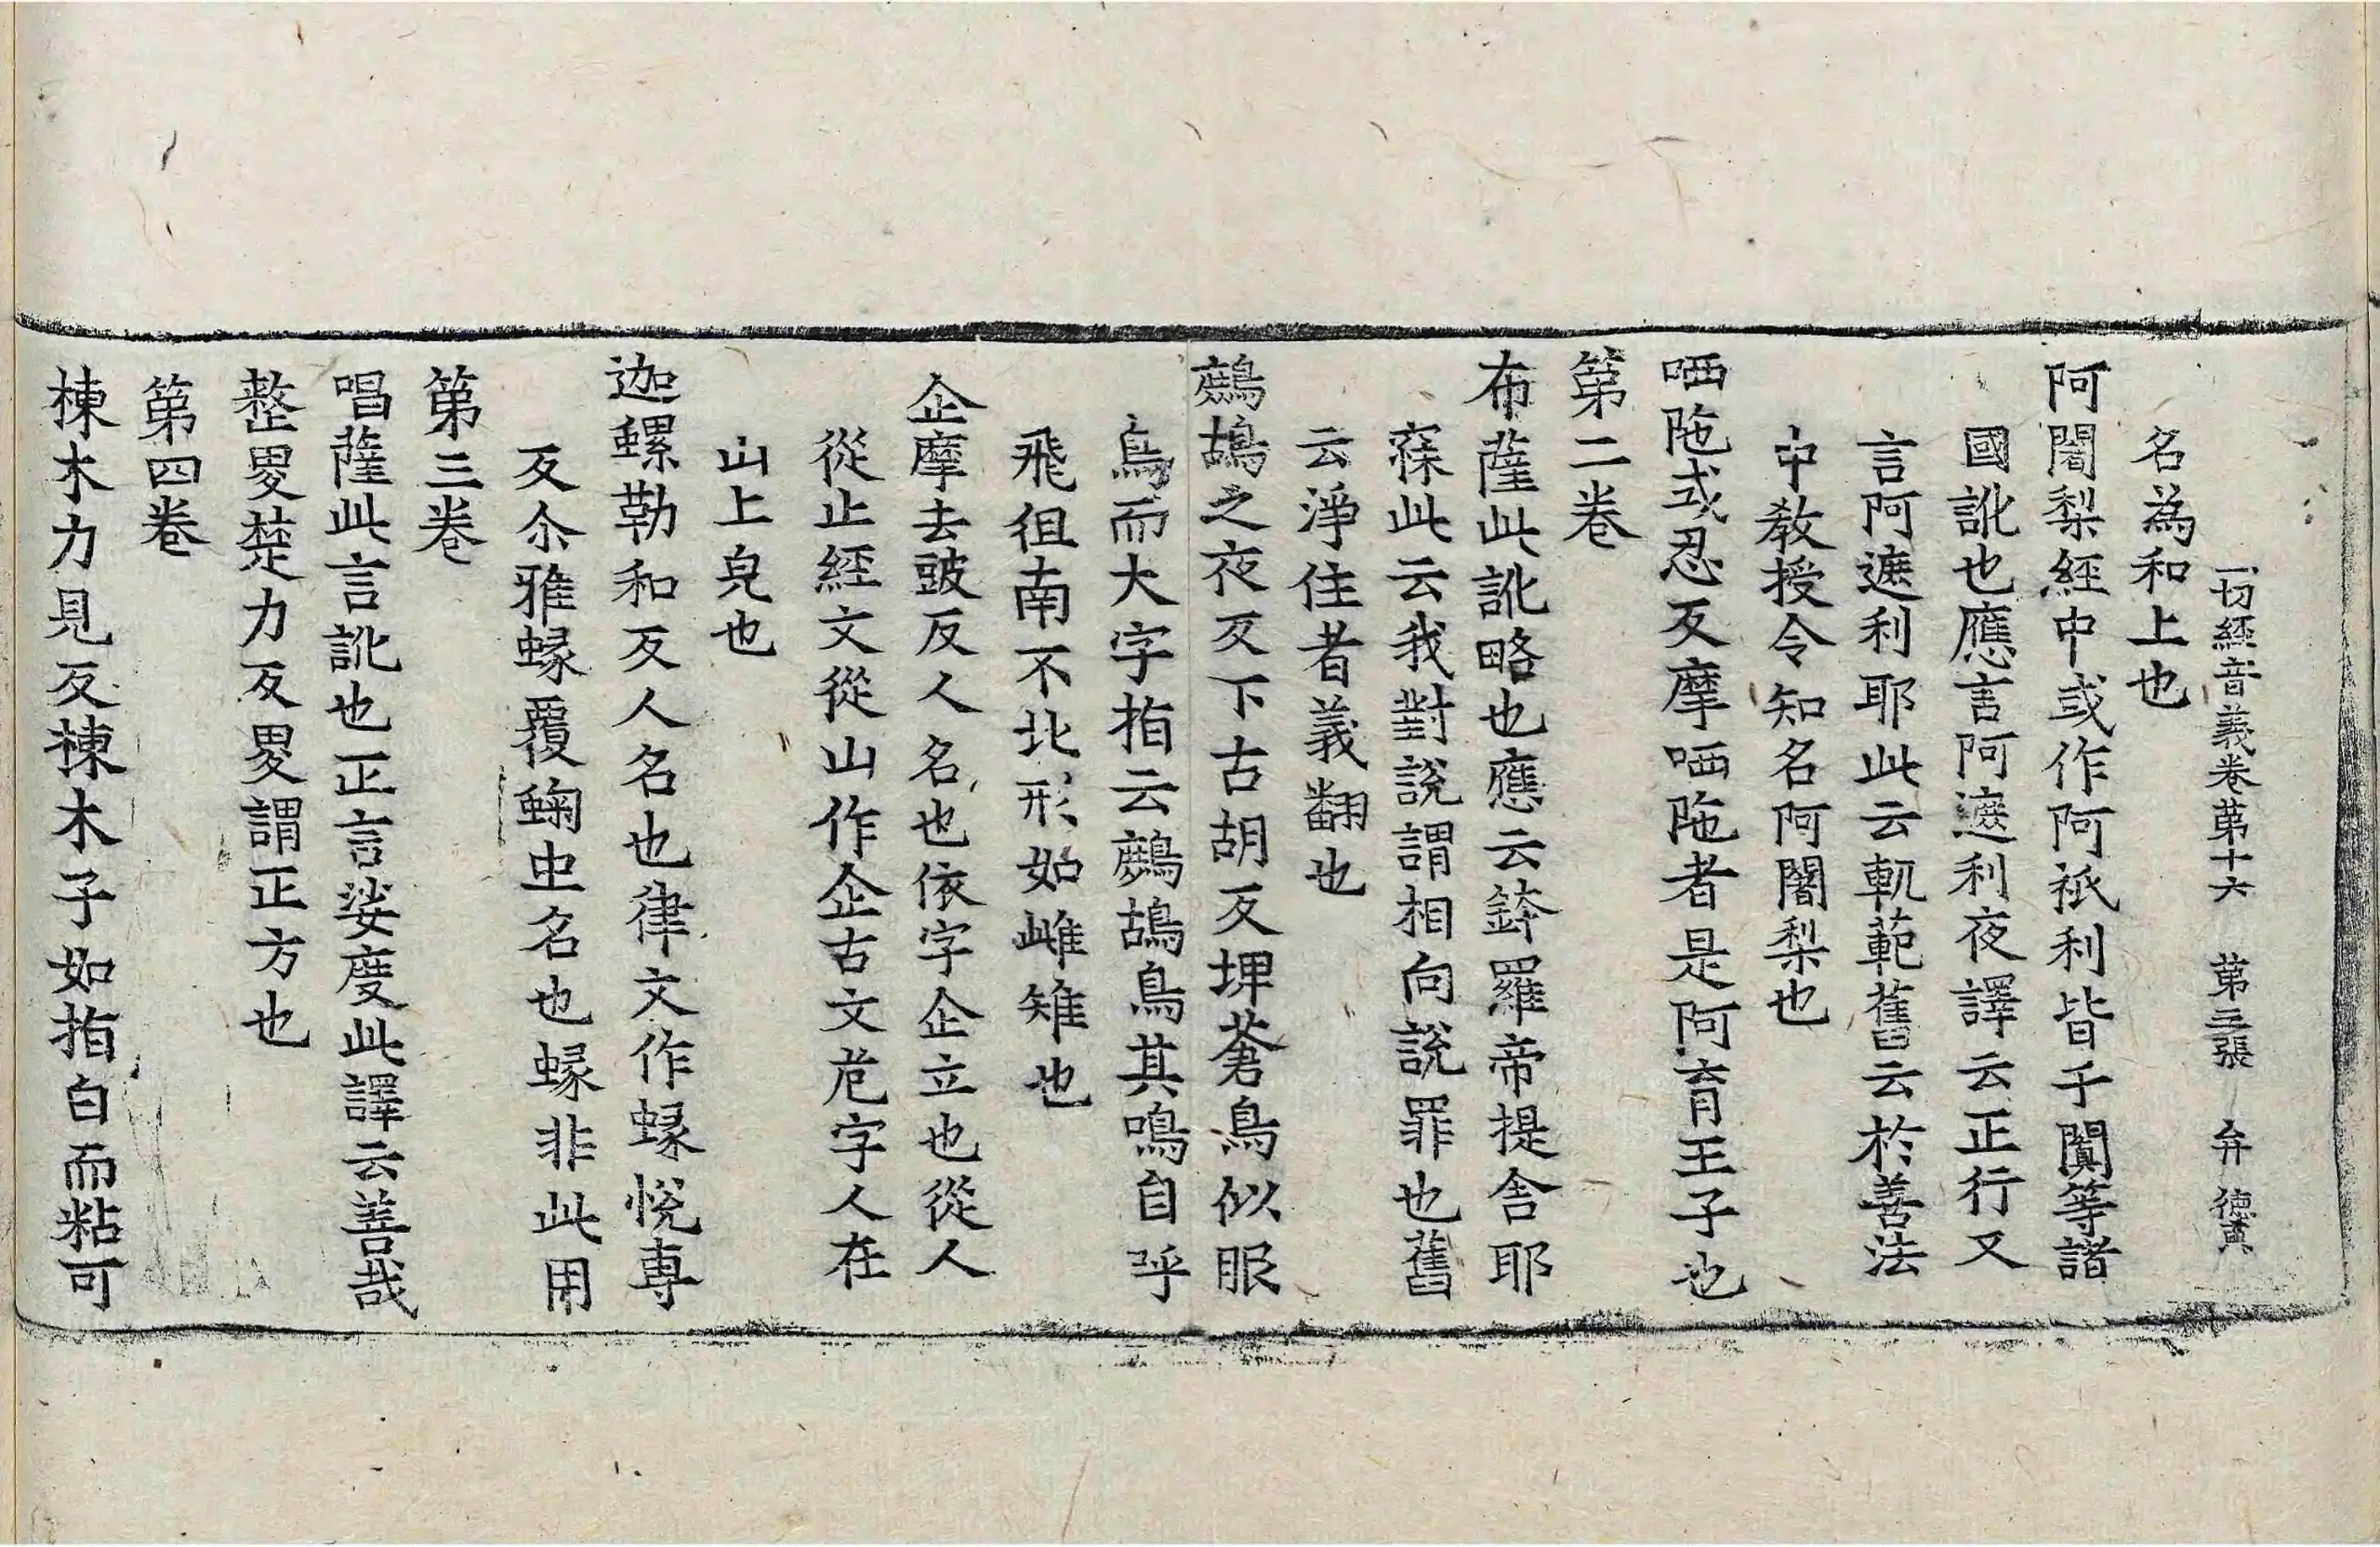 一切經音義卷第十六 第三張 弁 德䕫
名為和上也
阿闍梨經中或作阿祇利皆于闐等諸
國訛也應言阿遮利夜譯云正行又
言阿遮利耶此云軌範舊云於善法
中教授令知名阿闍梨也
哂陁式忍反摩哂陁者是阿育王子也
第二卷
布薩此訛略也應云鉢羅帝提舍耶
寐此云我對說謂相向說罪也舊
云淨住者義翻也
鷓鴣之夜反下古胡反埤蒼鳥似服
鳥而大字指云鷓鴣鳥其鳴自呼
飛徂南不北形如雌雉也
企摩去豉反人名也依字企立也從人
從止經文從山作企古文危字人在
山上皃也
迦螺勒和反人名也律文作蝝悅專
反尒雅蝝覆蜪虫名也蝝非此用
第三卷
唱薩此言訛也正言娑度此譯云善哉
整畟楚力反畟謂正方也
第四卷
棟木力見反棟木子如指白而粘可